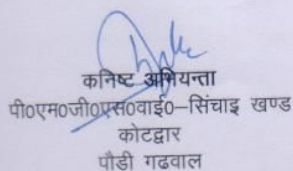 कनिष्ट अभियन्ता
पी०एम०जी०एस०वाई०–सिंचाइ खण्ड
कोटद्वार
पौडी गढवाल